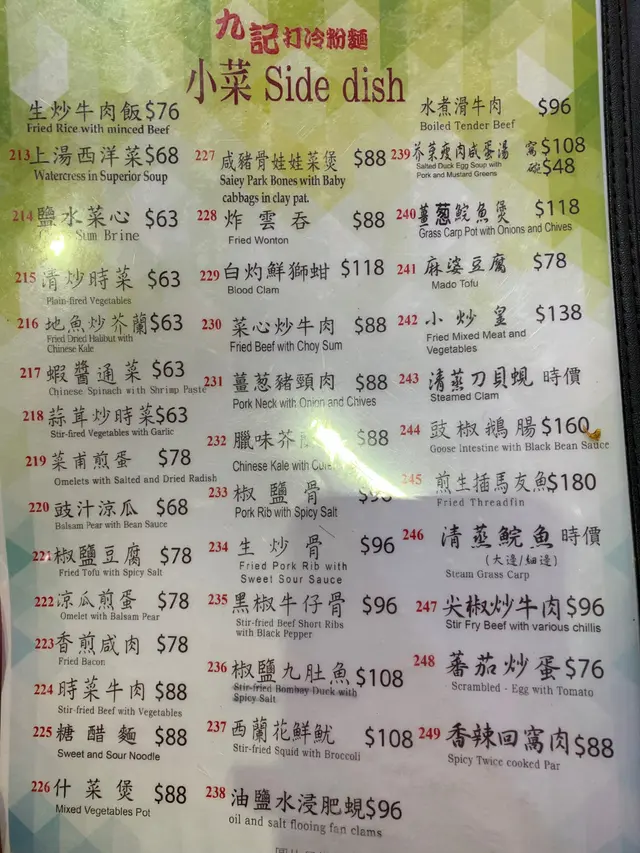 九記打冷粉麵
小菜 Side dish
生炒牛肉飯 $76
Fried Rice with minced Beef
213 上湯西洋菜 $68
Watercress in Superior Soup
214 鹽水菜心 $63
Sum Brine
215 清炒時菜 $63
Plain-fired Vegetables
216 地魚炒芥蘭 $63
Fried Dried Halibut with
Chinese Kale
217 蝦醬通菜 $63
Chinese Spinach with Shrimp Paste
218 蒜茸炒時菜 $63
Stir-fired Vegetables with Garlic
219 菜甫煎蛋 $78
Omelets with Salted and Dried Radish
220 豉汁涼瓜 $68
Balsam Pear with Bean Sauce
221 椒鹽豆腐 $78
Fried Tofu with Spicy Salt
222 涼瓜煎蛋 $78
Omelet with Balsam Pear
223 香煎咸肉 $78
Fried Bacon
224 時菜牛肉 $88
Stir-fired Beef with Vegetables
225 糖醋麵 $88
Sweet and Sour Noodle
226 什菜煲 $88
Mixed Vegetables Pot
227 咸豬骨娃娃菜煲 $88
Saiey Park Bones with Baby
cabbags in clay pat.
228 炸雲吞 $88
Fried Wonton
229 白灼鮮獅蚶 $118
Blood Clam
230 菜心炒牛肉 $88
Fried Beef with Choy Sum
231 薑葱豬頸肉 $88
Pork Neck with Onion and Chives
232 臘味芥 $88
Chinese Kale with
233 椒鹽骨
Pork Rib with Spicy Salt
234 生炒骨 $96
Fried Pork Rib with
Sweet Sour Sauce
235 黑椒牛仔骨 $96
Stir-fired Beef Short Ribs
with Black Pepper
236 椒鹽九肚魚 $108
Stir-fried Bombay Duck with
Spicy Salt
237 西蘭花鮮魷 $108
Stir-fried Squid with Broccoli
238 油鹽水浸肥蜆 $96
oil and salt flooing fan clams
水煮滑牛肉 $96
Boiled Tender Beef
239 芥菜瘦肉咸蛋湯 窩 $108
碗 $48
Salted Duck Egg Soup with
Pork and Mustard Greens
240 薑葱鯇魚煲 $118
Grass Carp Pot with Onions and Chives
241 麻婆豆腐 $78
Mado Tofu
242 小炒皇 $138
Fried Mixed Meat and
Vegetables
243 清蒸刀貝蜆 時價
Steamed Clam
244 豉椒鵝腸 $160
Goose Intestine with Black Bean Sauce
245 煎生插馬友魚 $180
Fried Threadfin
246 清蒸鯇魚 時價
(大邊/細邊)
Steam Grass Carp
247 尖椒炒牛肉 $96
Stir Fry Beef with various chillis
248 蕃茄炒蛋 $76
Scrambled - Egg with Tomato
249 香辣回窩肉 $88
Spicy Twice cooked Par